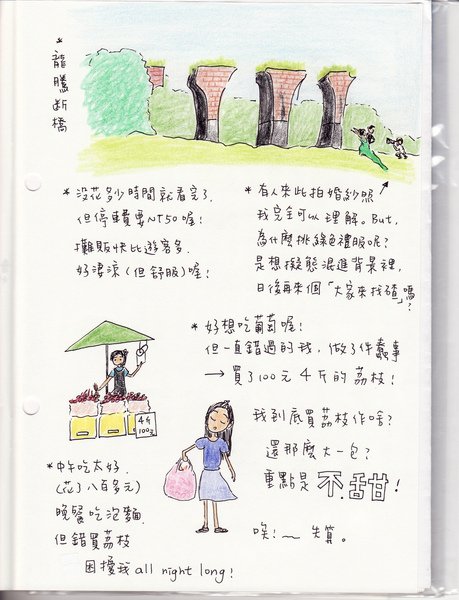 *龍騰断橋
*沒花多少時間就看完了,
但停車費要NT50喔!
攤販快比遊客多.
好淒涼(但舒服)喔!
*有人來此拍婚紗照
我完全可以理解. But,
為什麼挑綠色禮服呢?
是想擬態混進背景裡,
日後再來個「大家來找碴」嗎?
*好想吃葡萄喔!
但一直錯過的我,做了件蠢事
→買了100元4斤的荔枝!
4斤
100元
我到底買荔枝作啥?
還那麼大一包?
重點是不甜!
唉!~ 失算。
*中午吃太好.
(花了八百多元)
晚餐吃泡麵.
但錯買荔枝
困擾我all night long!